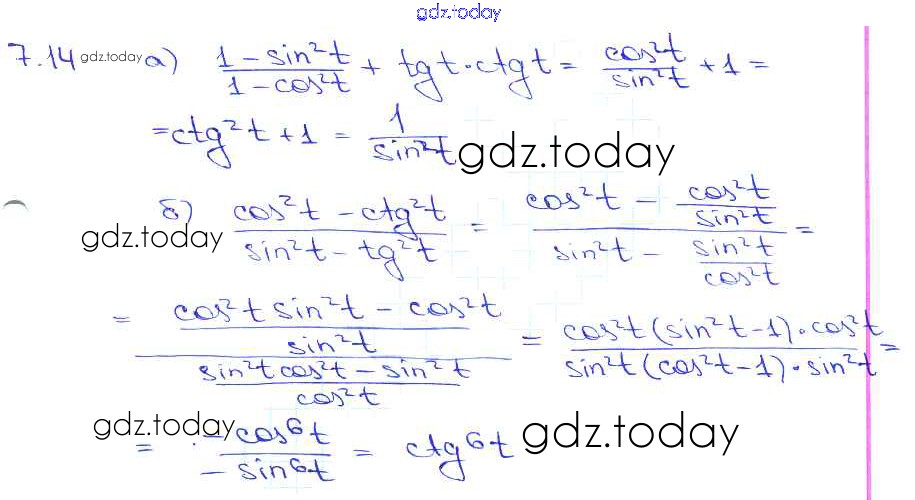 gdz.today
7.14 gdz.today а) (1 - sin²t)/(1 - cos²t) + tgt · ctgt = cos²t/sin²t + 1 =
= ctg²t + 1 = 1/sin²t gdz.today
б) (cos²t - ctg²t)/(sin²t - tg²t) = (cos²t - cos²t/sin²t)/(sin²t - sin²t/cos²t) =
gdz.today
= ((cos²t sin²t - cos²t)/sin²t)/((sin²t cos²t - sin²t)/cos²t) = (cos²t (sin²t - 1) · cos²t)/(sin²t (cos²t - 1) · sin²t) =
gdz.today
= (-cos⁶t)/(-sin⁶t) = ctg⁶t gdz.today